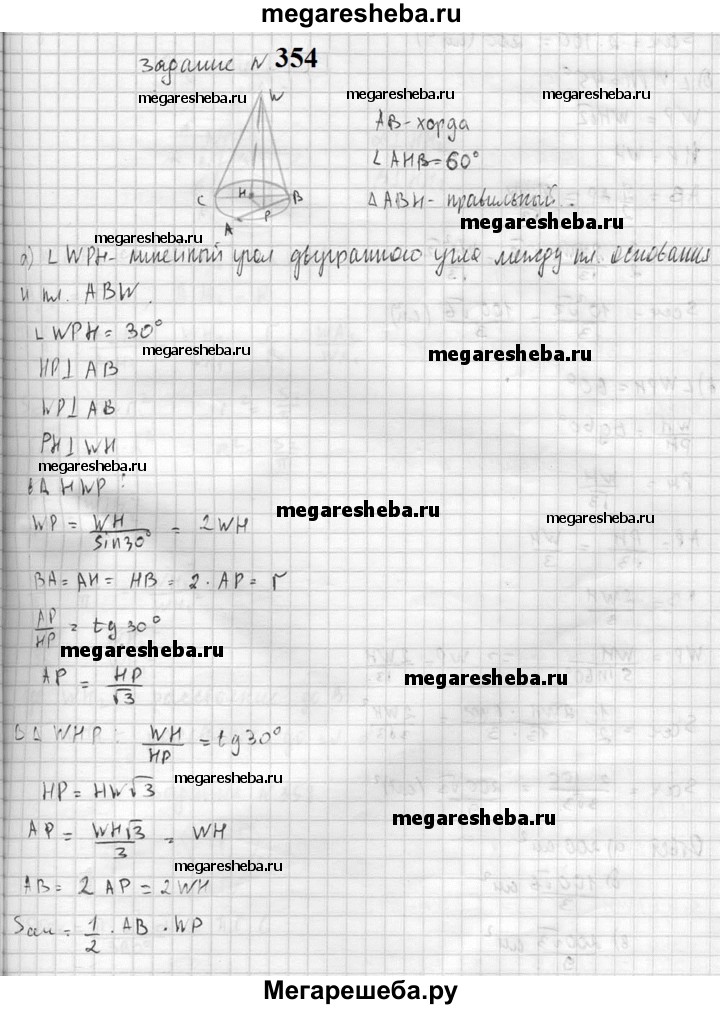 megaresheba.ru
Задание N 354
megaresheba.ru
megaresheba.ru
megaresheba.ru
W
C
H
B
A
P
AB-хорда
∠AHB=60°
ΔABH- правильный.
megaresheba.ru
а) ∠WPH- линейный угол двугранного угла между пл. основания
и пл. ABW.
∠WPH=30°
megaresheba.ru
megaresheba.ru
HP⊥AB
WP⊥AB
PH⊥WH
megaresheba.ru
в Δ HWP:
megaresheba.ru
megaresheba.ru
WP = WH/sin30° = 2WH
BA = AH = HB = 2 · AP = r
AP/HP = tg 30°
megaresheba.ru
megaresheba.ru
AP = HP/√3
В Δ WHP: WH/HP = tg30°
megaresheba.ru
HP = HW√3
megaresheba.ru
AP = WH√3/3 = WH
megaresheba.ru
AB = 2 AP = 2WH
Sсеч = 1/2 · AB · WP
Мегарешеба.ру